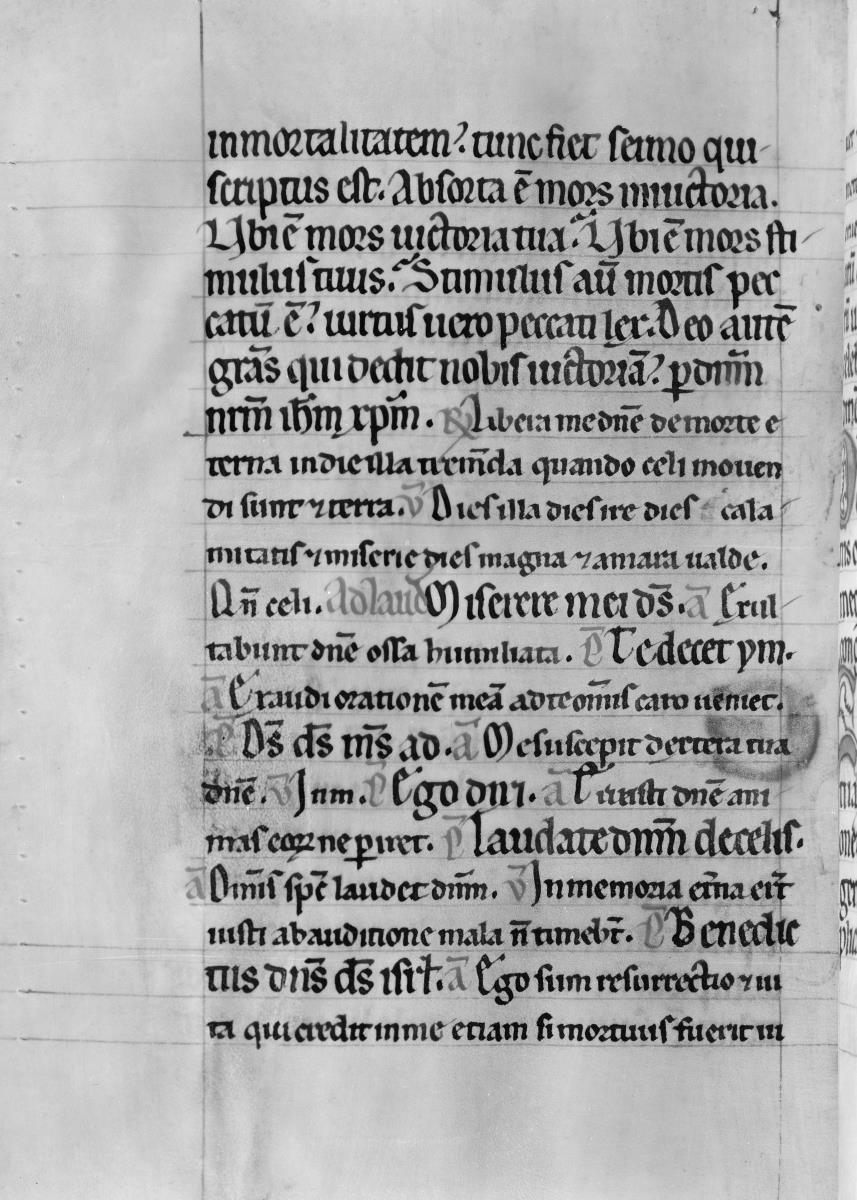 inmortalitatem? tunc fiet sermo qui
scriptus est. Absorta ē mors inuictoria.
Ubi ē mors uictoria tua? Ubi ē mors sti
mulus tuus? Stimulus aū mortis pec
catū ē? uirtus uero peccati lex. Deo autē
grās qui dedit nobis uictoriā? p dnm̄
nrm̄ ihm̄ xpm̄. R Libera me dnē de morte e
terna in die illa trem̄da quando celi mouen
di sunt ⁊ terra. V Dies illa dies ire dies cala
mitatis ⁊ miserie dies magna ⁊ amara ualde.
An̄ celi. Ad laud Miserere mei ds̄. a Exul
tabunt dnē ossa humiliata. p Te decet ym.
a Exaudi orationē meā ad te om̄is caro ueniet.
p Ds̄ ds̄ ms̄ ad. a Me suscepit dextera tua
dnē. V In m. p Ego dixi. a Eruisti dnē ani
mas eoꝝ ne piret. p Laudate dnm̄ de celis.
a Om̄is spc̄ laudet dnm̄. V In memoria etn̄a erit
iusti ab auditione mala n̄ timebt̄. p Benedic
tus dns̄ ds̄ isrl̄. a Ego sum resurrectio ⁊ ui
ta qui credit in me etiam si mortuus fuerit ui